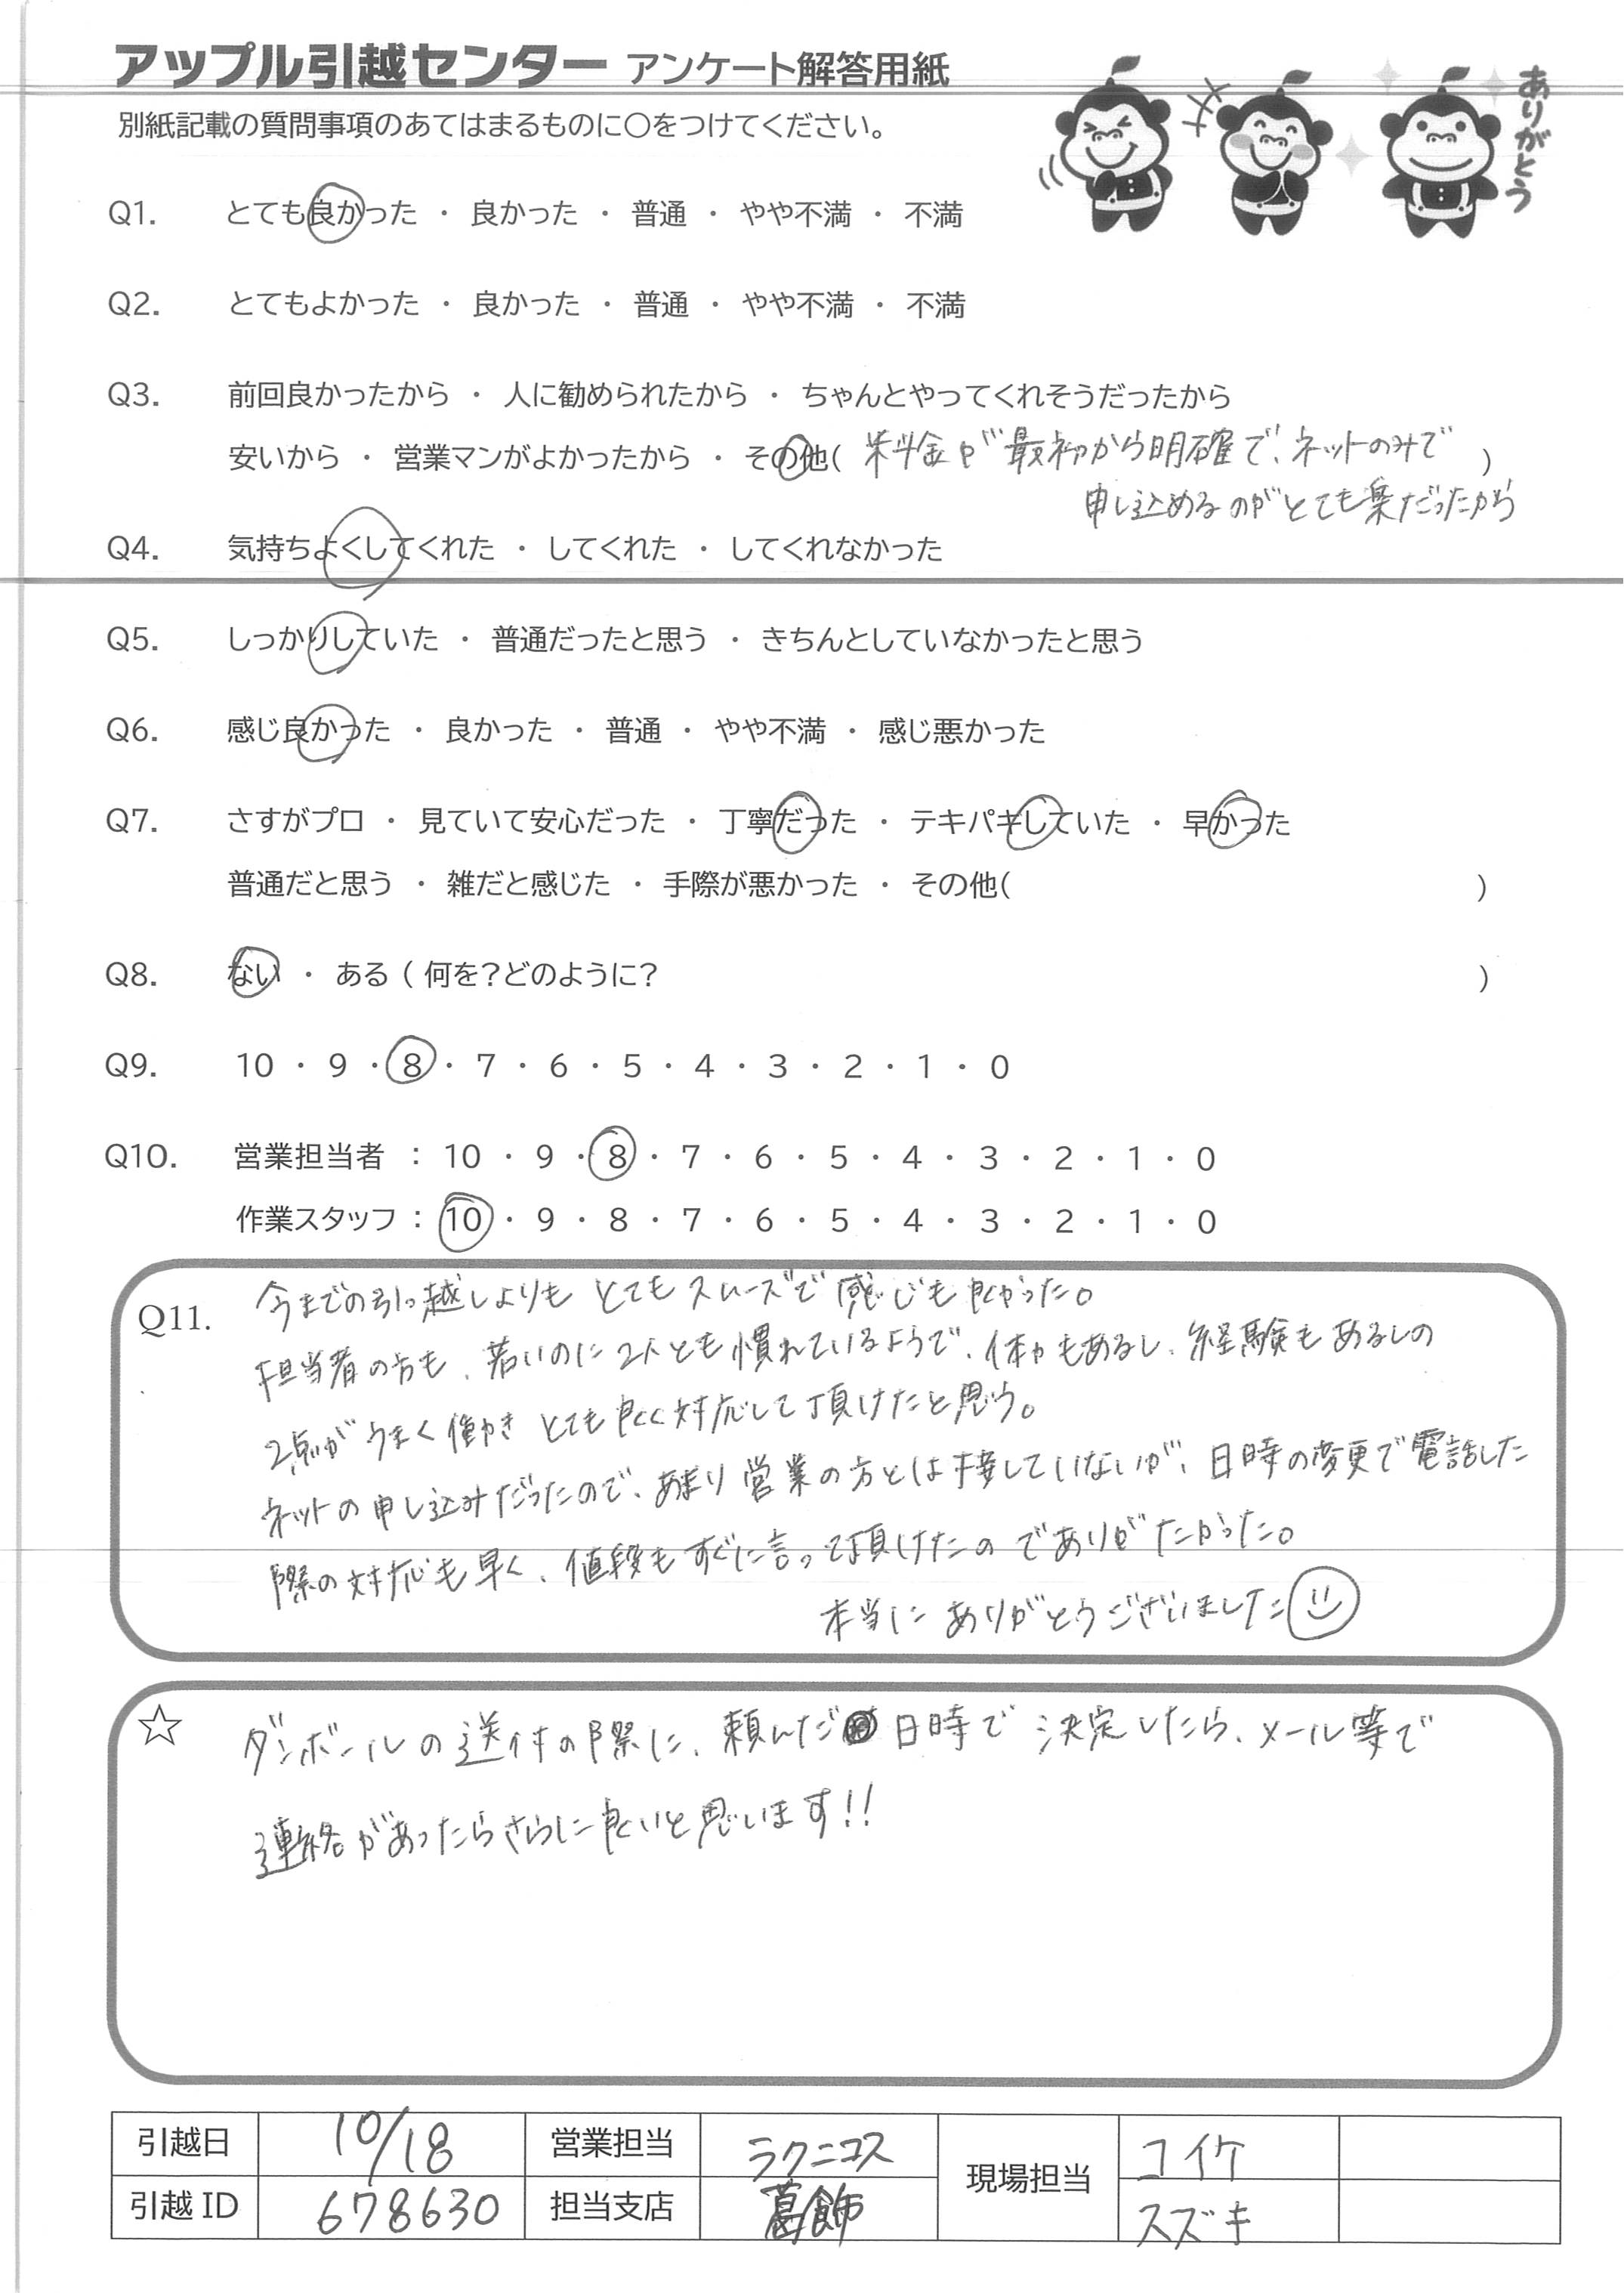 アップル引越センター アンケート解答用紙
別紙記載の質問事項のあてはまるものに〇をつけてください。
ありがとう
Q1. とても良かった ・ 良かった ・ 普通 ・ やや不満 ・ 不満
Q2. とてもよかった ・ 良かった ・ 普通 ・ やや不満 ・ 不満
Q3. 前回良かったから ・ 人に勧められたから ・ ちゃんとやってくれそうだったから
安いから ・ 営業マンがよかったから ・ その他( 料金が最初から明確で、ネットのみで )
申し込めるのがとても楽だったから
Q4. 気持ちよくしてくれた ・ してくれた ・ してくれなかった
Q5. しっかりしていた ・ 普通だったと思う ・ きちんとしていなかったと思う
Q6. 感じ良かった ・ 良かった ・ 普通 ・ やや不満 ・ 感じ悪かった
Q7. さすがプロ ・ 見ていて安心だった ・ 丁寧だった ・ テキパキしていた ・ 早かった
普通だと思う ・ 雑だと感じた ・ 手際が悪かった ・ その他( )
Q8. ない ・ ある ( 何を?どのように? )
Q9. 10 ・ 9 ・ 8 ・ 7 ・ 6 ・ 5 ・ 4 ・ 3 ・ 2 ・ 1 ・ 0
Q10. 営業担当者 : 10 ・ 9 ・ 8 ・ 7 ・ 6 ・ 5 ・ 4 ・ 3 ・ 2 ・ 1 ・ 0
作業スタッフ : 10 ・ 9 ・ 8 ・ 7 ・ 6 ・ 5 ・ 4 ・ 3 ・ 2 ・ 1 ・ 0
Q11. 今までの引っ越しよりも とてもスムーズで感じも良かった。
担当者の方も、若いのに2人とも慣れているようで、体力もあるし、経験もあるしの
2点がうまく働き とても良く対応して頂けたと思う。
ネットの申し込みだったので、あまり営業の方とは接していないが、日時の変更で電話した
際の対応も早く、値段もすぐに言って頂けたのでありがたかった。
本当にありがとうございました
☆ ダンボールの送付の際に、頼んだ日時で決定したら、メール等で
連絡があったらさらに良いと思います!!
引越日 10/18 営業担当 ラクニコス 現場担当 コイケ
引越ID 678630 担当支店 葛飾 スズキ